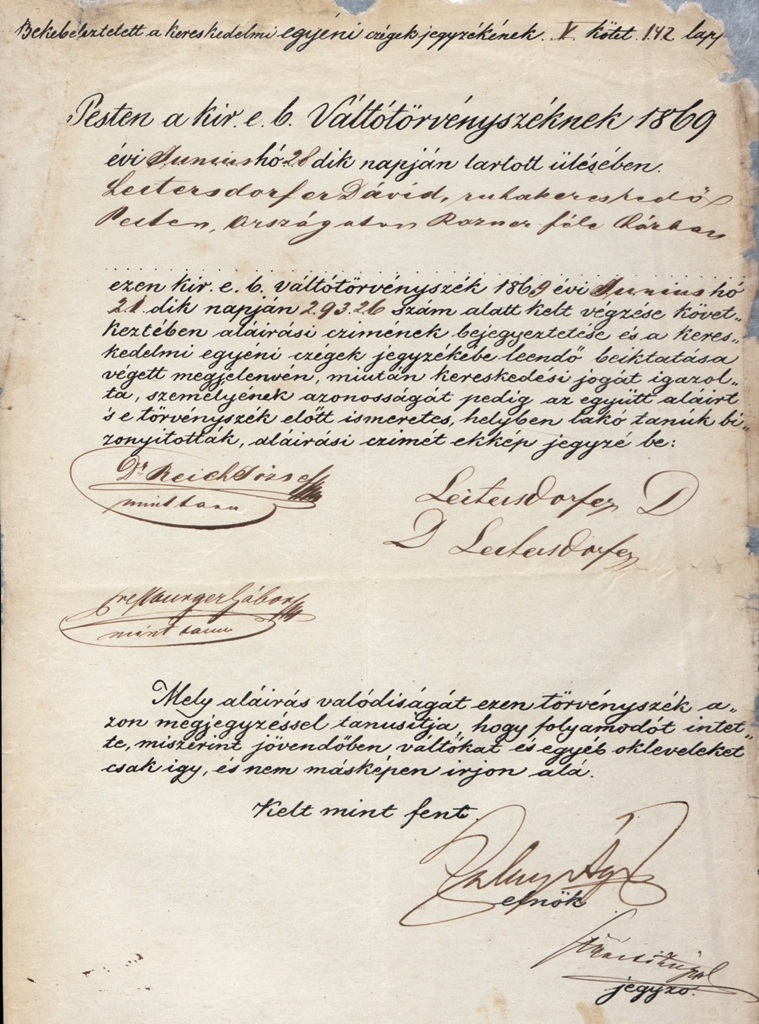 Bekebeleztetett a kereskedelmi egyéni czégek jegyzékének V kötet 142 lap
Pesten a kir. e. b. Váltótörvényszéknek 1869
évi Junius hó 28 dik napján tartott ülésében.
Leitersdorfer Dávid, ruhakereskedő
Pesten, Országúton házban
ezen kir. e. b. váltótörvényszék 1869 évi Junius hó
21 dik napján 29326 szám alatt kelt végzése követ-
keztében aláirási czimének bejegyeztetése és a keres-
kedelmi egyéni czégek jegyzékébe leendő beiktatása
végett megjelenvén, miután kereskedési jogát igazol-
ta, személyének azonosságát pedig az együtt aláirt
s e törvényszék előtt ismeretes, helyben lakó tanúk bi-
zonyitották, aláirási czimét ekkép jegyzé be:
Dr Reich József
mint tanu
Leitersdorfer D
D Leitersdorfer
Gábor
mint tanu
Mely aláirás valódiságát ezen törvényszék a-
zon megjegyzéssel tanusitja, hogy folyamodót intet-
te, miszerint jövendőben váltókat és egyéb okleveleket
csak igy, és nem másképen irjon alá.
Kelt mint fent.
elnök
jegyző.